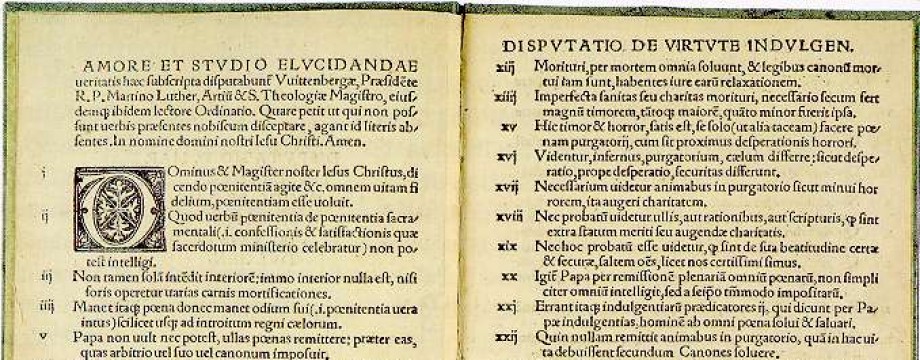 AMORE ET STVDIO ELVCIDANDAE
ueritatis hæc subscripta disputabunt̃ Vuittenbergæ, Præsidẽte
R. P. Martino Luther, Artiũ & S. Theologiæ Magistro, eius-
demq; ibidem lectore Ordinario. Quare petit ut qui non pos-
sunt uerbis præsentes nobiscum disceptare, agant id literis ab-
sentes. In nomine domini nostri Iesu Christi. Amen.
i Ominus & Magister noster Iesus Christus, di
cendo pœnitentiã agite &c. omnem uitam fi
delium, pœnitentiam esse uoluit.
ij Quod uerbũ pœnitentia de pœnitentia sacra-
mentali (.i. confessionis & satisfactionis quæ
sacerdotum ministerio celebratur) non po-
test intelligi.
iij Non tamen solã intẽdit interiorẽ; immo interior nulla est, nisi
foris operetur uarias carnis mortificationes.
iiij Manet itaq; pœna donec manet odium sui (.i. pœnitentia uera
intus) scilicet usq; ad introitum regni cælorum.
v Papa non uult nec potest, ullas pœnas remittere; præter eas,
quas arbitrio uel suo uel canonum imposuit.
DISPVTATIO DE VIRTVTE INDVLGEN.
xiij Morituri, per mortem omnia soluunt, & legibus canonũ mor-
tui iam sunt, habentes iure earũ relaxationem.
xiiij Imperfecta sanitas seu charitas morituri, necessario secum fert
magnũ timorem, tãtoq; maiorẽ, quãto minor fuerit ipsa.
xv Hic timor & horror, satis est, se solo (ut alia taceam) facere pœ-
nam purgatorij, cum sit proximus desperationis horrori.
xvj Videntur, infernus, purgatorium, cælum differre; sicut despe-
ratio, prope desperatio, securitas differunt.
xvij Necessarium uidetur animabus in purgatorio sicut minui hor
rorem, ita augeri charitatem.
xviij Nec probatũ uidetur ullis, aut rationibus, aut scripturis, ꝙ sint
extra statum meriti seu augendæ charitatis.
xix Nec hoc probatũ esse uidetur, ꝙ sint de sua beatitudine certæ
& securæ, saltem oẽs, licet nos certissimi simus.
xx Igit̃ Papa per remissionẽ plenariã omniũ pœnarũ, non simpli
citer omniũ intelligit, sed a seipo tm̃modo impositarũ.
xxj Errant itaq; indulgentiarũ prædicatores ij, qui dicunt per Pa-
pæ indulgentias, hominẽ ab omni pœna solui & saluari.
xxij Quin nullam remittit animabus in purgatorio, quã in hac ui-
ta debuissent secundum Canones soluere.